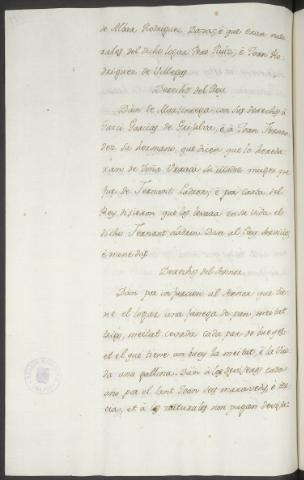 de Mora Rodriguez, Lasaş, è que eran natu
rales del dicho logar Pero Ruiz, è Joan Ro
driguez de Villegas
Derecho del Rey
Dan de Martiniega con sos derechos à
Garci Garcias de Grijalva, è à Joan Fernan
dez so hermano, que dicen que lo hereda
ron de Doña Urraca su madre muger que
fue de Fernant Ladron; è por carta del
Rey dijieron que los levara en su vida el
dicho Fernant Ladron. Dan al Rey servicios,
è monedas.
Derechos del Señor
Dan por infurcion al Señor que tie
ne el logar una fanega de pan, meitat
trigo, meitat cevada cada par de bueyes
et el que tiene un buey la meitat, è la viu
da una gallina. Dan à los señores cada
año por el Sant Joan seis maravedis, è
et à los naturales non pagan devisa;